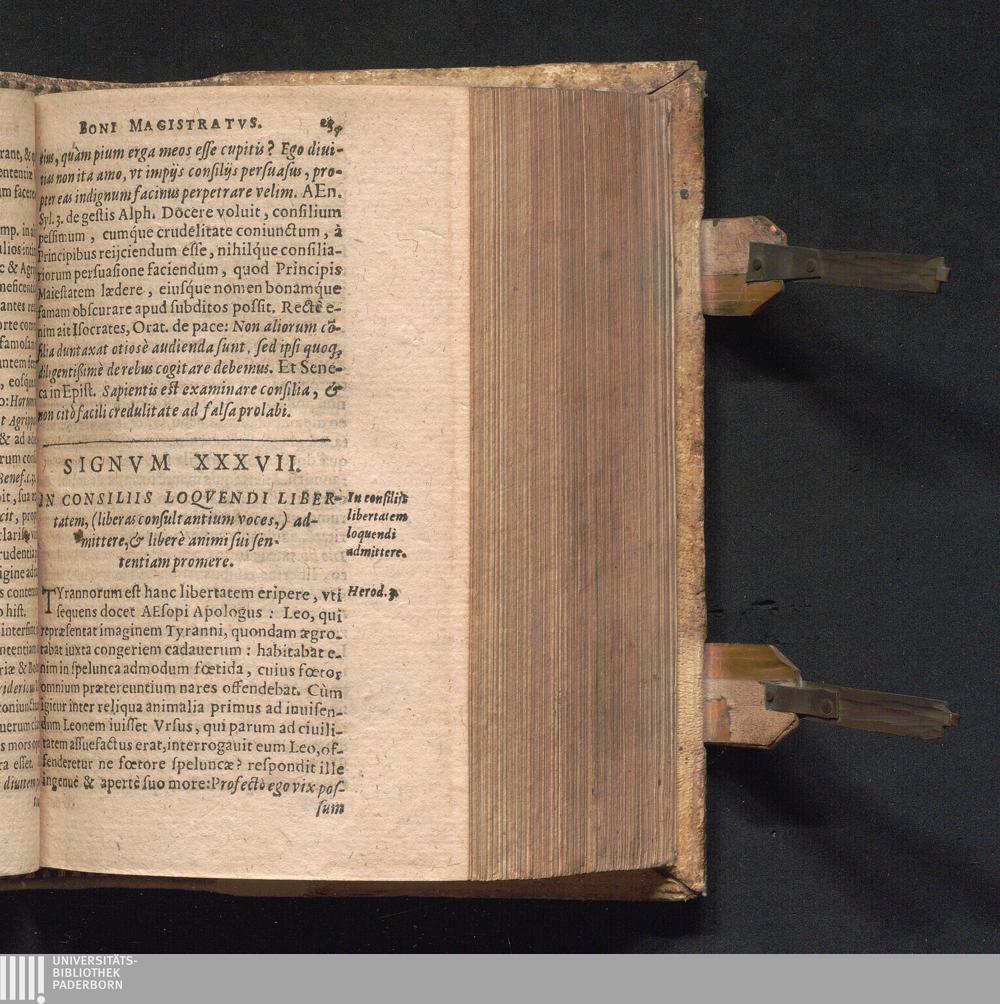 BONI MAGISTRATVS.
rius, quàm pium erga meos esse cupitis? Ego diui-
tias non ita amo, vt impijs consilijs persuasus, pro-
pter eas indignum facinus perpetrare velim. AEn.
Syl. 3. de gestis Alph. Docere voluit, consilium
pessimum, cumq́ue crudelitate coniunctum, à
Principibus reijciendum esse, nihilq́ue consilia-
riorum persuasione faciendum, quod Principis
Maiestatem lædere, eiusq́ue nomen bonamq́ue
famam obscurare apud subditos possit. Rectè e-
nim ait Isocrates, Orat. de pace: Non aliorum cō-
silia duntaxat otiosè audienda sunt, sed ipsi quoq;
diligentißimè de rebus cogitare debemus. Et Sene-
ca in Epist. Sapientis est examinare consilia, &
non citò facili credulitate ad falsa prolabi.
SIGNVM XXXVII.
IN CONSILIIS LOQVENDI LIBER-
tatem, (liberas consultantium voces,) ad-
mittere, & liberè animi sui sen-
tentiam promere.
In consiliis
libertatem
loquendi
admittere.
TYrannorum est hanc libertatem eripere, vti
Herod. 3.
sequens docet AEsopi Apologus: Leo, qui
repræsentat imaginem Tyranni, quondam ægro-
tabat iuxta congeriem cadauerum: habitabat e-
nim in spelunca admodum fœtida, cuius fœtor
omnium prætereuntium nares offendebat. Cùm
igitur inter reliqua animalia primus ad inuisen-
dum Leonem iuisset Vrsus, qui parum ad ciuili-
tatem assuefactus erat, interrogauit eum Leo, of-
fenderetur ne fœtore speluncæ? respondit ille
ingenuè & apertè suo more: Profectò ego vix pos-
sum
UNIVERSITÄTS-
BIBLIOTHEK
PADERBORN